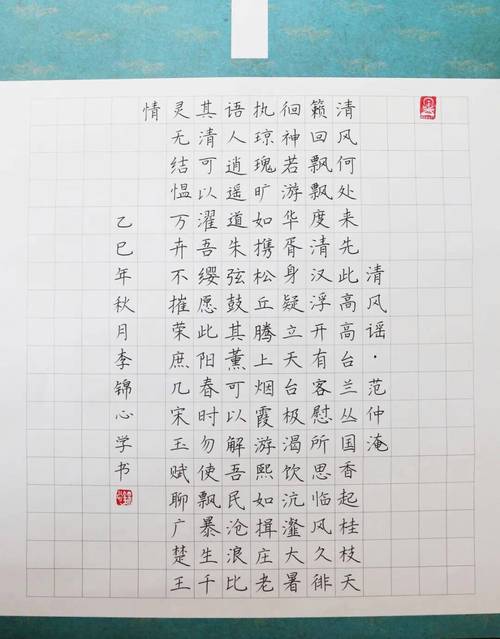 清风谣·范仲淹
清风何处来先此高高台兰丛国香起桂枝天
籁回飘飘度清汉浮开有客慰所思临风久徘
徊神若游华胥身疑立天台极渴饮沆瀣大暑
执琼瑰旷如携松丘腾上烟霞游熙如揖庄老
语人逍遥道朱弦鼓其薰可以解吾民沧浪比
其清可以濯吾缨愿此阳春时勿使飘暴生千
灵无结愠万卉不摧荣庶几宋玉赋聊广楚王
情
乙巳年秋月李锦心学书